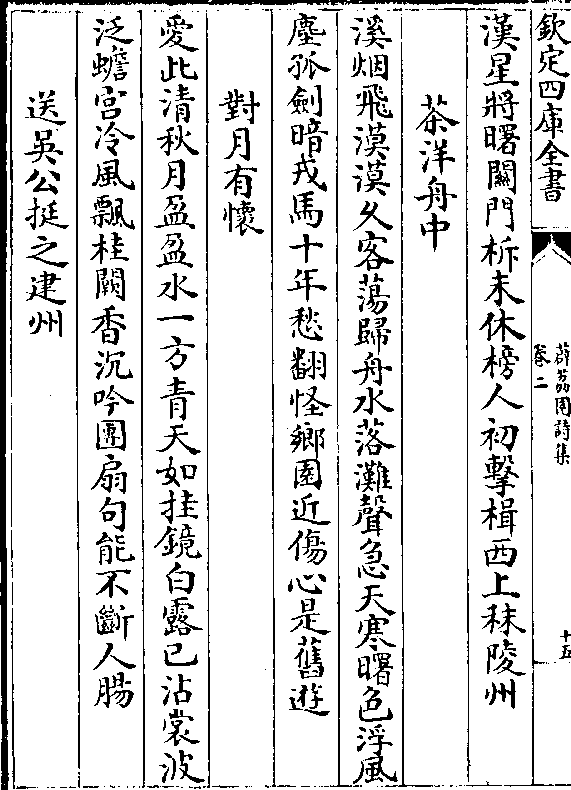 欽定四庫全書
薜荔園詩集
卷二
十五
漢星將曙關門柝未休榜人初擊楫西上秣陵州
茶洋舟中
溪烟飛漠漠久客蕩歸舟水落灘聲急天寒曙色浮風
塵孤劍暗戎馬十年愁翻怪鄉園近傷心是舊遊
對月有懷
愛此清秋月盈盈水一方青天如挂鏡白露已沾裳波
泛蟾宮冷風飄桂闕香沉吟團扇句能不斷人腸
送吳公挺之建州